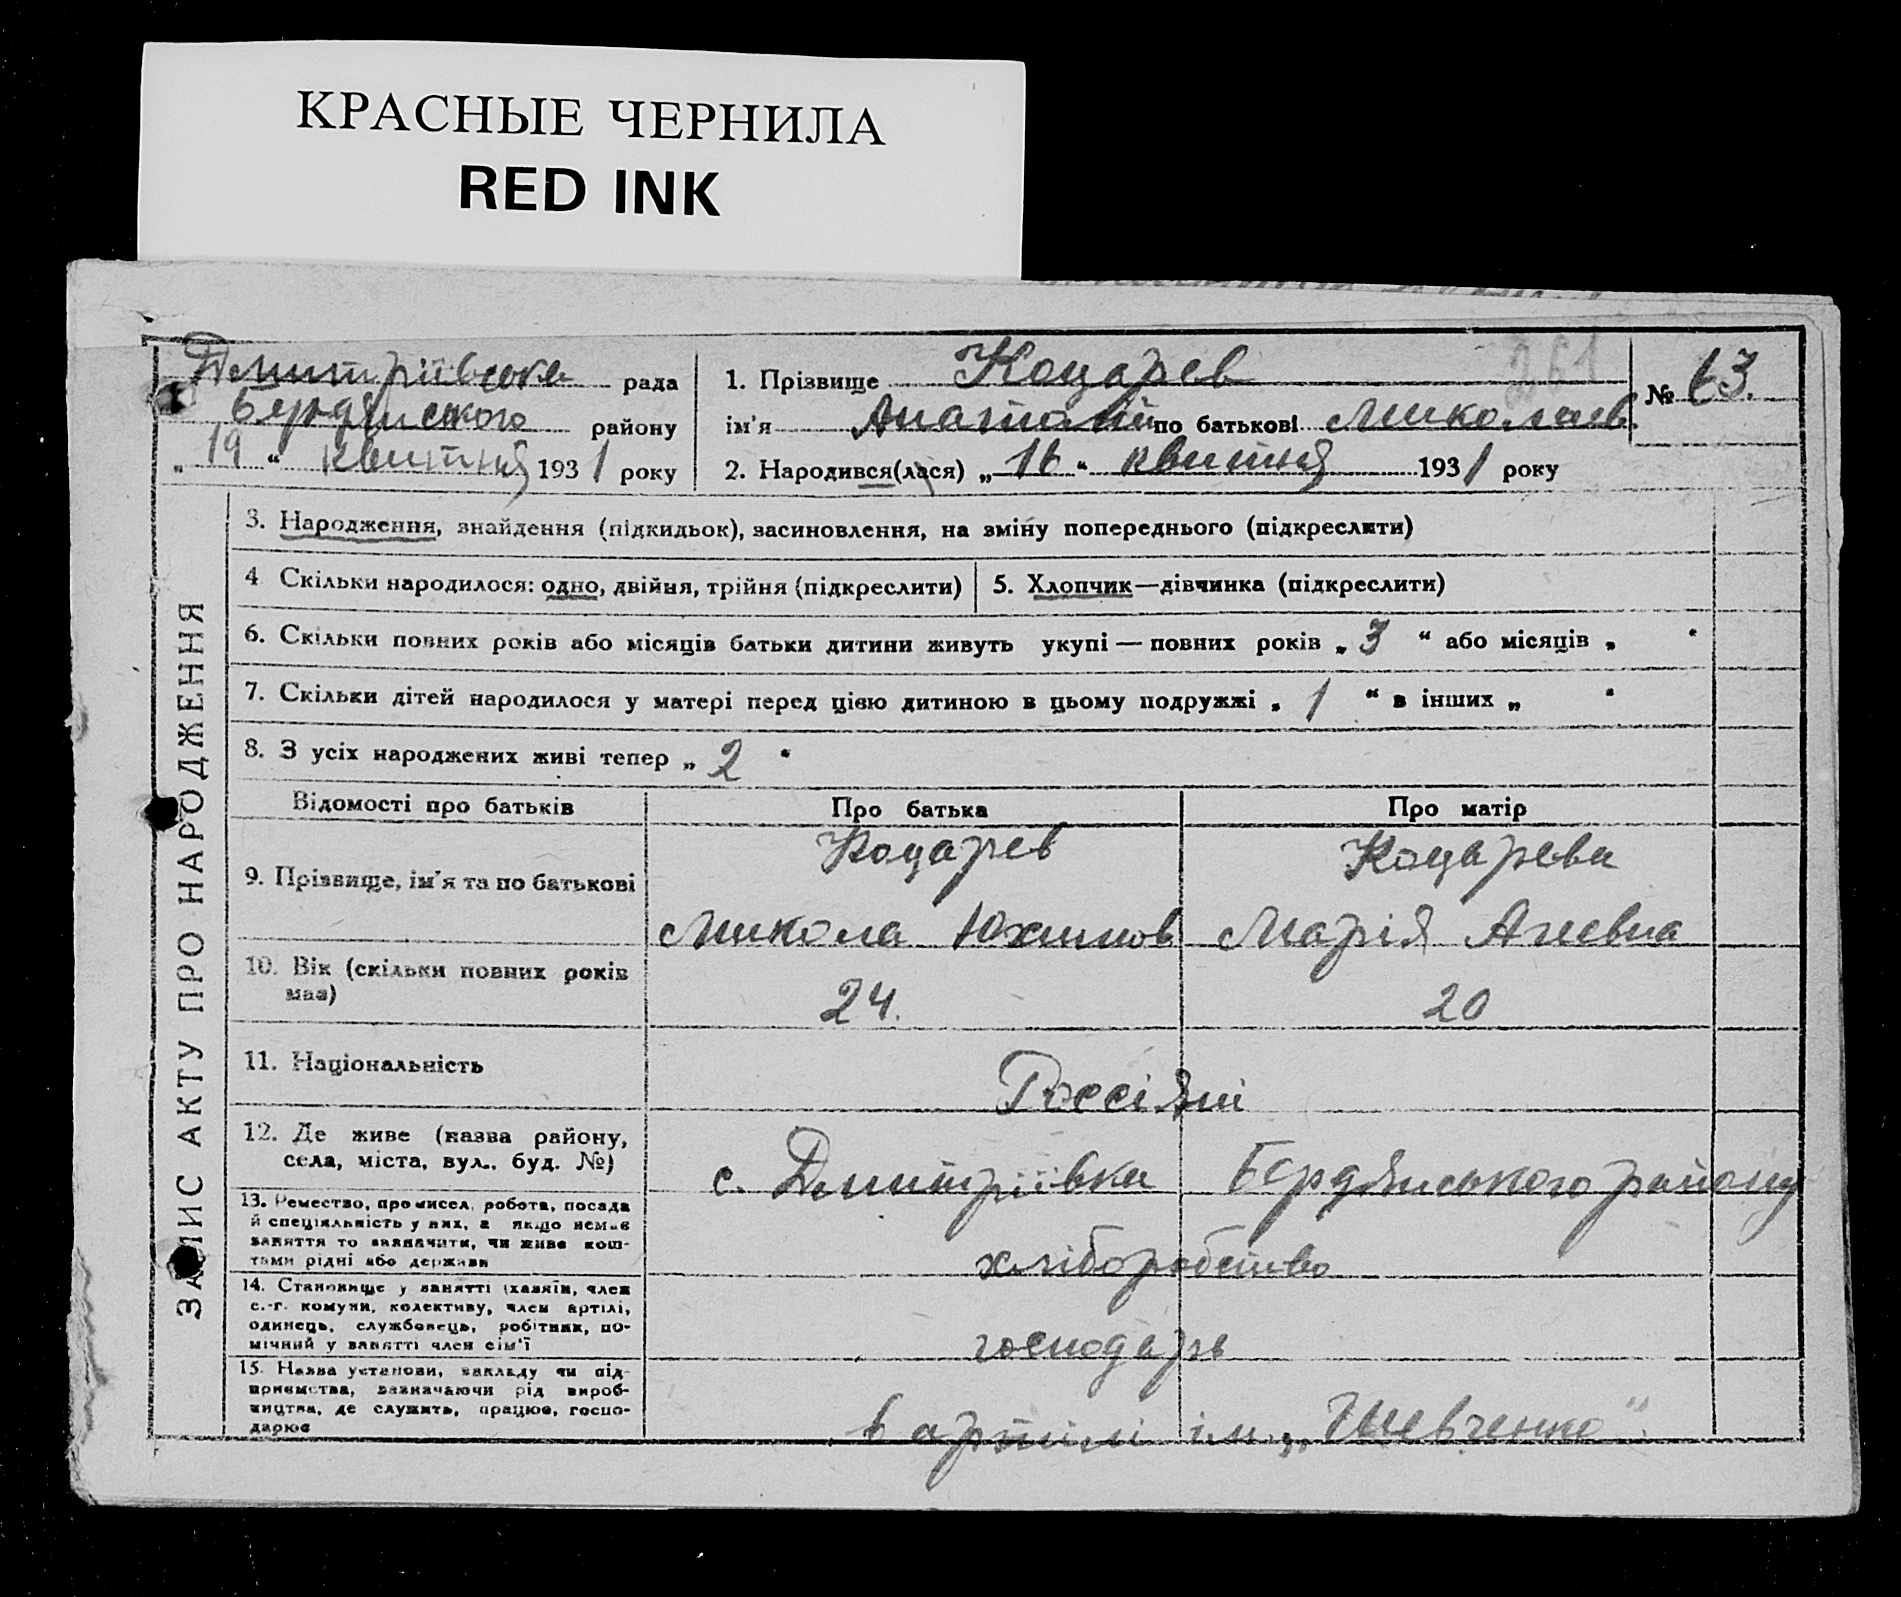 КРАСНЫЕ ЧЕРНИЛА
RED INK
Дмитріївська рада
Бердянського району
„19“ квітня 1931 року
1. Прізвище Коцарев
ім'я Анатолій по батькові Миколаєв.
2. Народився(лася) „16“ квітня 1931 року
261
№ 63.
ЗАПИС АКТУ ПРО НАРОДЖЕННЯ
3. Народження, знайдення (підкидьок), засиновлення, на зміну попереднього (підкреслити)
4 Скільки народилося: одно, двійня, трійня (підкреслити)
5. Хлопчик—дівчинка (підкреслити)
6. Скільки повних років або місяців батьки дитини живуть укупі — повних років „3“ або місяців „ “
7. Скільки дітей народилося у матері перед цією дитиною в цьому подружжі „1“ в інших „ “
8. З усіх народжених живі тепер „2“
Відомості про батьків Про батька Про матір
9. Прізвище, ім'я та по батькові
Коцарев
Микола Юхимов
Коцарева
Марія
10. Вік (скільки повних років
має)
24.
20
11. Національність
Россіяні
12. Де живе (назва району,
села, міста, вул., буд. №)
с. Дмитріївка Бердянського району
13. Ремество, промисел, робота, посада
й спеціяльність у них, а якщо немає
заняття то зазначити, чи живе кош-
тами рідні або держави
хліборобство
14. Становище у занятті (хазяїн, член
с.-г. комуни, колективу, член артілі,
одинець, службовець, робітник, по-
мічний у занятті член сім'ї
господарь
15. Назва установи, закладу чи під-
приємства, зазначаючи рід вироб-
ництва, де служить, працює, госпо-
дарює
в артілі ім. „Шевченко“.